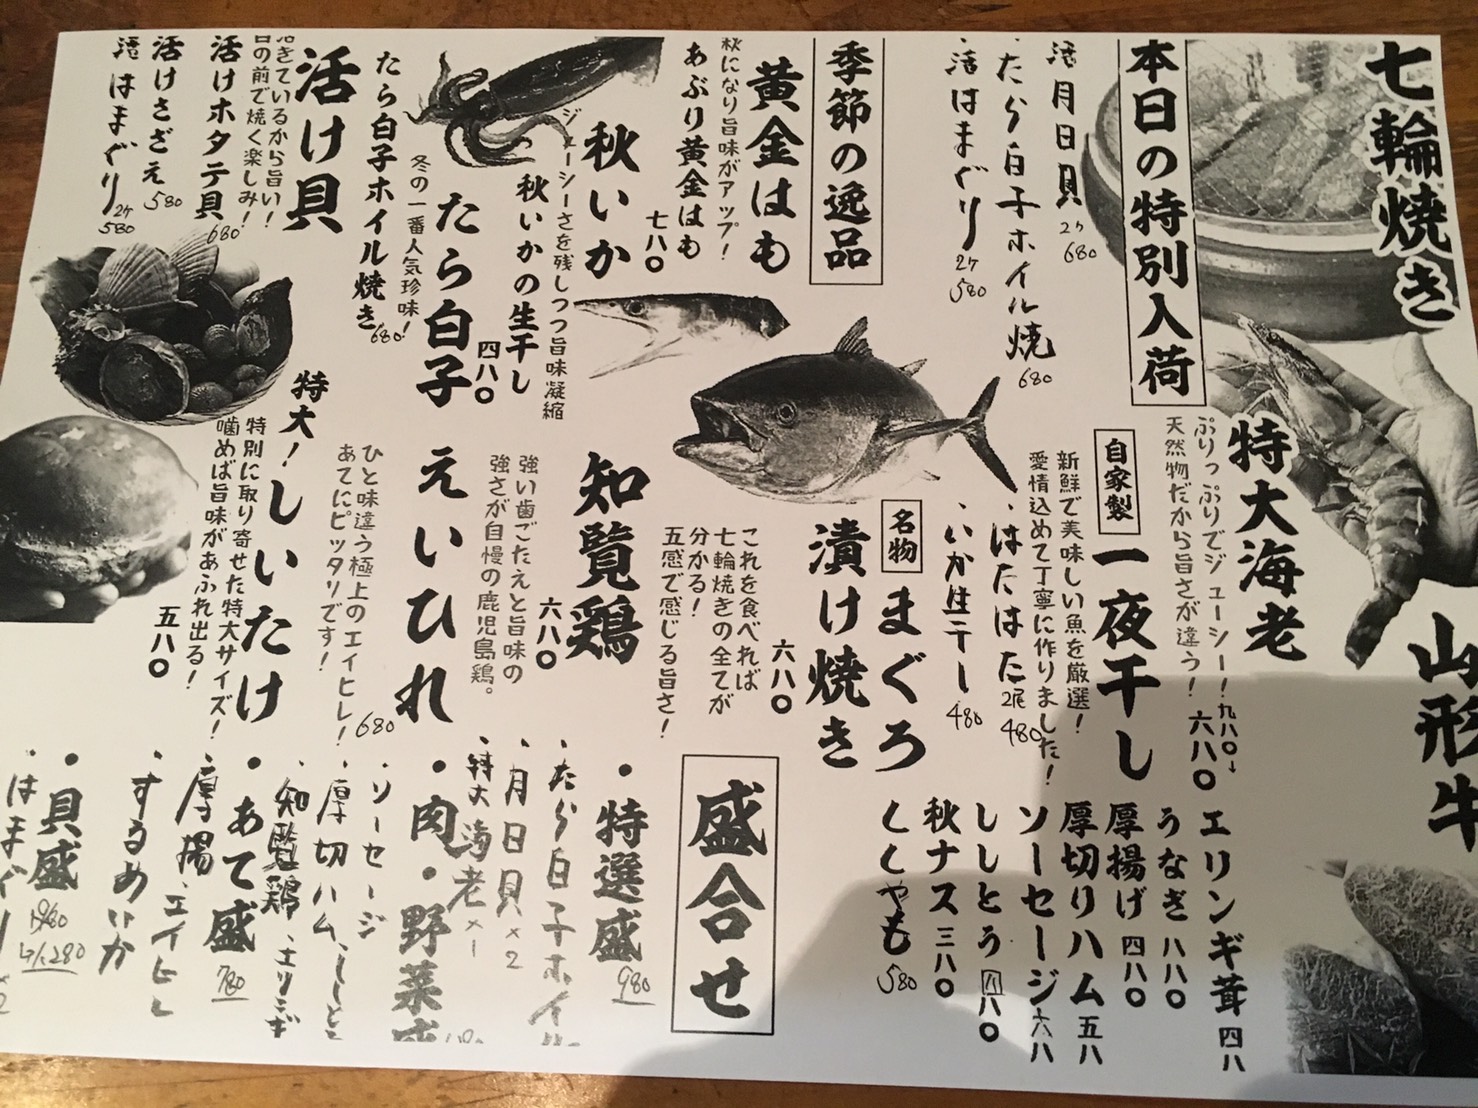 七輪焼き
本日の特別入荷
活月日貝 2ケ 680
・たら白子ホイル焼 680
・活はまぐり 2ケ 580
季節の逸品
黄金はも
秋になり旨味がアップ！
あぶり黄金はも 七八〇
秋いか
ジューシーさを残しつつ旨味凝縮
秋いかの生干し 四八〇
たら白子
冬の一番人気珍味！
たら白子ホイル焼き 680
活け貝
活きているから旨い！
目の前で焼く楽しみ！
活けホタテ貝 680
活けさざえ 580
活はまぐり 2ケ 580
山形牛
特大海老
ぷりっぷりでジューシー！九八〇→
天然物だから旨さが違う！ 六八〇
自家製
一夜干し
新鮮で美味しい魚を厳選！
愛情込めて丁寧に作りました！
・はたはた 2尾 480
・いか生干し 480
名物
まぐろ
漬け焼き
六八〇
これを食べれば
七輪焼きの全てが
分かる！
五感で感じる旨さ！
知覧鶏
六八〇
強い歯ごたえと旨味の
強さが自慢の鹿児島鶏。
えいひれ
ひと味違う極上のエイヒレ！
あてにピッタリです！
680
特大！しいたけ
特別に取り寄せた特大サイズ！
噛めば旨味があふれ出る！
五八〇
エリンギ茸 四八
うなぎ 八八〇
厚揚げ 四八〇
厚切りハム 五八
ソーセージ 六八
ししとう 八八〇
秋ナス 三八〇
ししゃも 580
盛合せ
・特選盛 980
・たら白子ホイル
・月日貝×2
・特大海老×一
・肉・野菜
ソーセージ
・厚切ハム、ししと
・知覧鶏、エリンギ
・あて盛 780
厚揚、エイヒレ
・するめいか
・貝盛
はまぐり×2